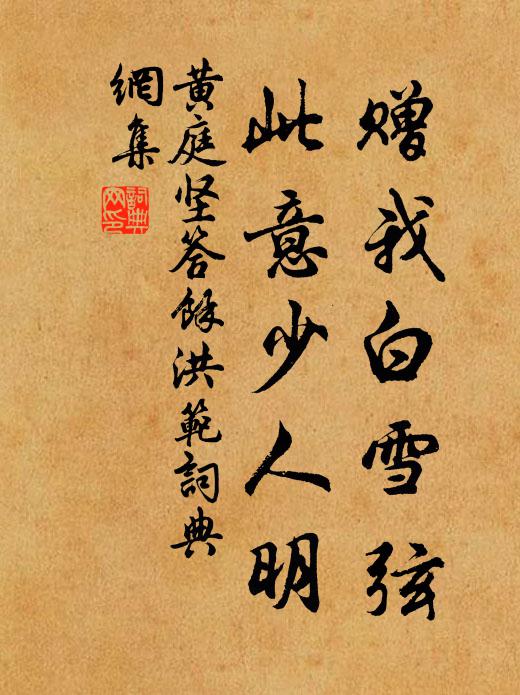 赠我白雪弦
此意少人明
黄庭坚答馀洪範詞典
網集
詞典
网印